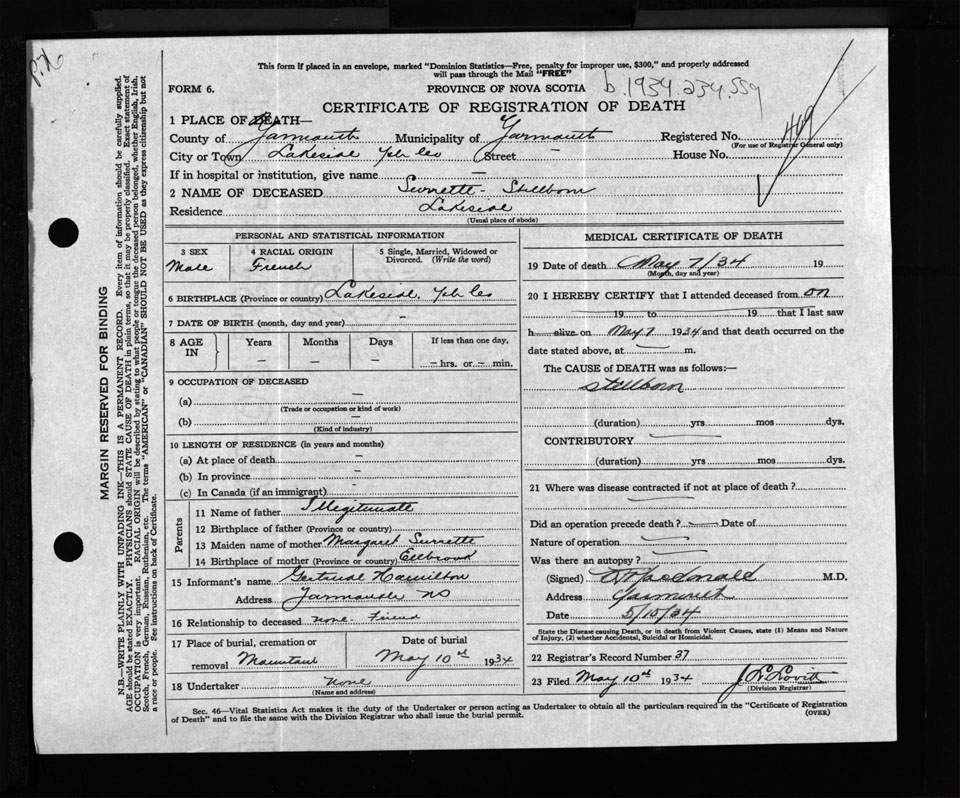 This form if placed in an envelope, marked "Dominion Statistics—Free, penalty for improper use, $300," and properly addressed
will pass through the Mail "FREE"
FORM 6.
PROVINCE OF NOVA SCOTIA
b. 1934.234.559
CERTIFICATE OF REGISTRATION OF DEATH
1 PLACE OF DEATH—
County of Yarmouth Municipality of Yarmouth Registered No.
(For use of Registrar General only)
City or Town Lakeside Yph Co Street — House No.
If in hospital or institution, give name —
2 NAME OF DECEASED Surrette - Stillborn
Residence Lakeside
(Usual place of abode)
PERSONAL AND STATISTICAL INFORMATION
3 SEX
Male
4 RACIAL ORIGIN
French
5 Single, Married, Widowed or
Divorced. (Write the word)
6 BIRTHPLACE (Province or country) Lakeside, Yph Co
7 DATE OF BIRTH (month, day and year) —
8 AGE
IN
Years
—
Months
—
Days
—
If less than one day,
— hrs. or — min.
9 OCCUPATION OF DECEASED
(a) —
(Trade or occupation or kind of work)
(b) —
(Kind of industry)
10 LENGTH OF RESIDENCE (in years and months)
(a) At place of death —
(b) In province —
(c) In Canada (if an immigrant) —
Parents
11 Name of father Illegitimate
12 Birthplace of father (Province or country)
13 Maiden name of mother Margaret Surrette
14 Birthplace of mother (Province or country) Eelbrook
15 Informant's name Gertrude Hamilton
Address Yarmouth NS
16 Relationship to deceased none - Friend
17 Place of burial, cremation or
removal Mountain
Date of burial
May 10th 1934
18 Undertaker None
(Name and address)
MEDICAL CERTIFICATE OF DEATH
19 Date of death May 7/34 19
(Month, day and year)
20 I HEREBY CERTIFY that I attended deceased from on
19 to 19 that I last saw
h alive on May 7 1934 and that death occurred on the
date stated above, at m.
The CAUSE of DEATH was as follows:—
Stillborn
(duration) yrs mos dys.
CONTRIBUTORY
(duration) yrs mos dys.
21 Where was disease contracted if not at place of death?
Did an operation precede death? Date of
Nature of operation
Was there an autopsy?
(Signed) Macdonald M.D.
Address Yarmouth
Date 5/10/34
State the Disease causing Death, or in death from Violent Causes, state (1) Means and Nature
of Injury, (2) whether Accidental, Suicidal or Homicidal.
22 Registrar's Record Number 37
23 Filed May 10th 1934 J L Lovitt
(Division Registrar)
Sec. 46—Vital Statistics Act makes it the duty of the Undertaker or person acting as Undertaker to obtain all the particulars required in the "Certificate of Registration
of Death" and to file the same with the Division Registrar who shall issue the burial permit.
(OVER)
MARGIN RESERVED FOR BINDING
N.B.—WRITE PLAINLY WITH UNFADING INK—THIS IS A PERMANENT RECORD. Every item of information should be carefully supplied.
AGE should be stated EXACTLY. PHYSICIANS should STATE CAUSE OF DEATH in plain terms, so that it may be properly classified. Exact statement of
OCCUPATION is very important. RACIAL ORIGIN will be described by stating to what people or tongue the deceased person belonged, whether English, Irish,
Scotch, French, German, Russian, Ruthenian, etc. The terms "AMERICAN" or "CANADIAN" SHOULD NOT BE USED as they express citizenship but not
a race or people. See instructions on back of Certificate.